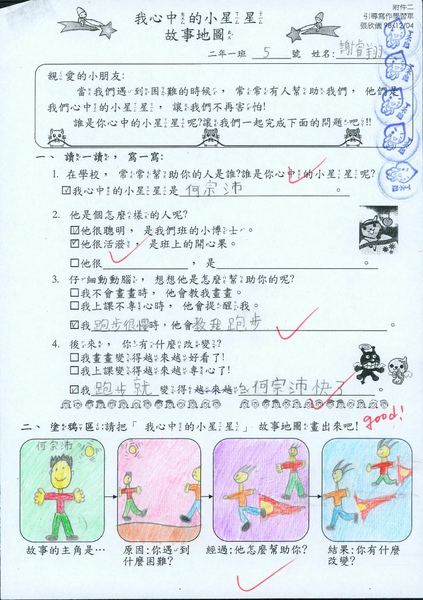 附件二
引導寫作學習單
張欣儀 98/12/04
我心中的小星星
故事地圖
二年一班 5 號 姓名:謝睿翔
親愛的小朋友:
當我們遇到困難的時候,常常有人幫助我們,他們是
我們心中的小星星,讓我們不再害怕!
誰是你心中的小星星呢?讓我們一起完成下面的問題吧!!
一、 讀一讀,寫一寫:
1. 在學校,常常幫助你的人是誰?誰是你心中的小星星呢?
☑我心中的小星星是 何宗沛 。
2. 他是個怎麼樣的人呢?
☑他很聰明,是我們班的小博士。
☑他很活潑,是班上的開心果。
□他很 ,是 。
3. 仔細動動腦,想想他是怎麼幫助你的呢?
□我不會畫畫時,他會教我畫畫。
□我上課不專心時,他會提醒我。
☑我 跑步很慢時,他會教我跑步 。
4. 後來,你有什麼改變?
□我畫畫變得越來越好看了!
□我上課變得越來越專心了!
☑我 跑步就 變得越來越 何宗沛快了
good!
二、塗鴉區:請把「我心中的小星星」故事地圖畫出來吧!
何宗沛
故事的主角是…
原因:你遇到什麼困難?
經過:他怎麼幫助你?
結果:你有什麼改變?